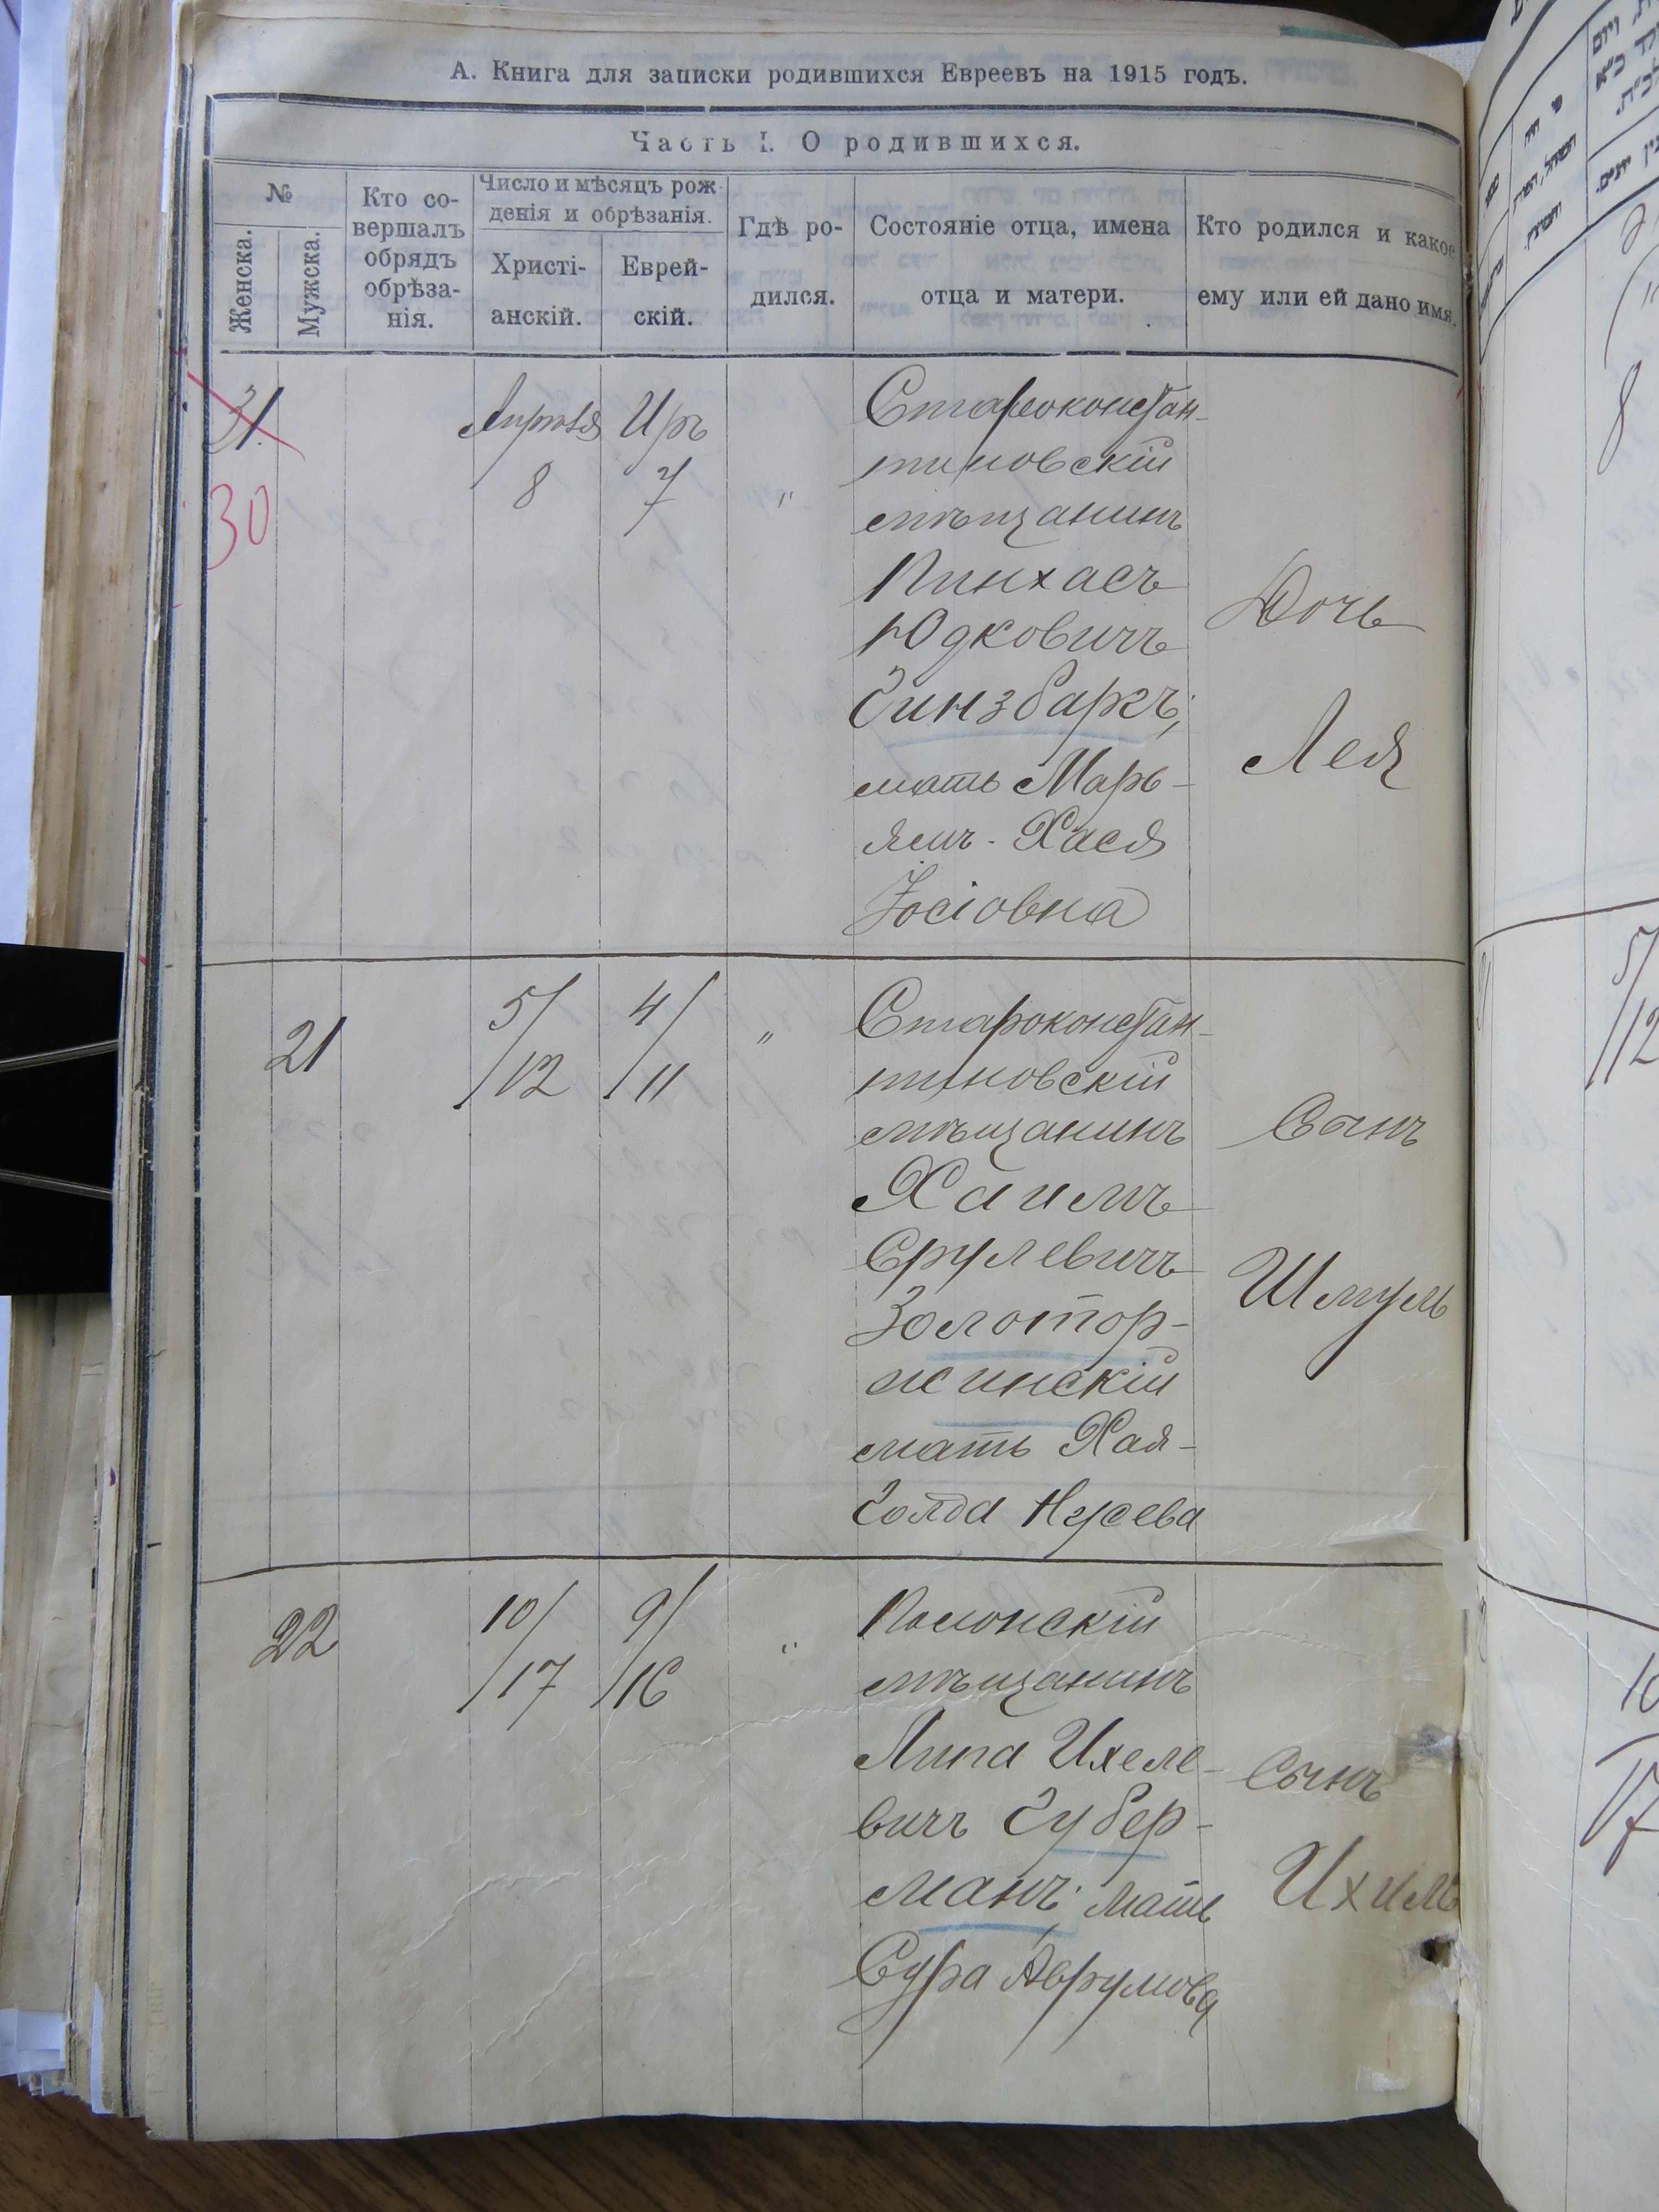 А. Книга для записки родившихся Евреевъ на 1915 годъ.
Часть I. О родившихся.
№
Женска.
Мужска.
Кто со-
вершалъ
обрядъ
обрѣза-
нія.
Число и мѣсяцъ рож
денія и обрѣзанія.
Христі-
анскій.
Еврей-
скій.
Гдѣ ро-
дился.
Состояніе отца, имена
отца и матери.
Кто родился и какое
ему или ей дано имя.
31.
30
Апрѣля
8
Иръ
7
"
Староконстан-
тиновскій
мѣщанинъ
Пинхасъ
Юдковичъ
Гинзбаргъ;
мать Марь-
ямъ-Хася
Іосіовна
Дочь
Лея
21
5/
/12
4/
/11
"
Староконстан-
тиновскій
мѣщанинъ
Хаимъ
Срулевичъ
Золотор-
жинскій
мать Хая-
Голда Нусева
Сынъ
Шмуль
22
10/
/17
9/
/16
"
Полонскій
мѣщанинъ
Липа Ихеле-
вичъ Губер-
манъ; мать
Сура Аврумова
Сынъ
Ихиль
8
5/
/12
10
17